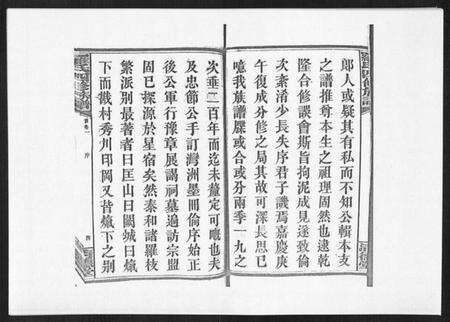 羅氏四修族譜
郎人或疑其有私而不知公輯本支
之譜推尊本生之祖理固然也逮乾
隆合修談會斯旨拘泥成見遂致倫
次紊淆少長失序君子譏焉嘉慶庚
午復成分修之局其故可深長思已
噫我族譜牒或合或分兩季一九之
次垂二百年而迄未釐定可嘅也夫
及忠節公手訂灣洲墨圖倫序始正
後公軍行豫章展謁祠墓遍訪宗盟
固已探源於星宿矣然泰和諸羅枝
繁派別最著者曰匡山曰闕城曰爊
下而戩村秀川印岡又皆爊下之別
羅氏四修族譜
卷一
序